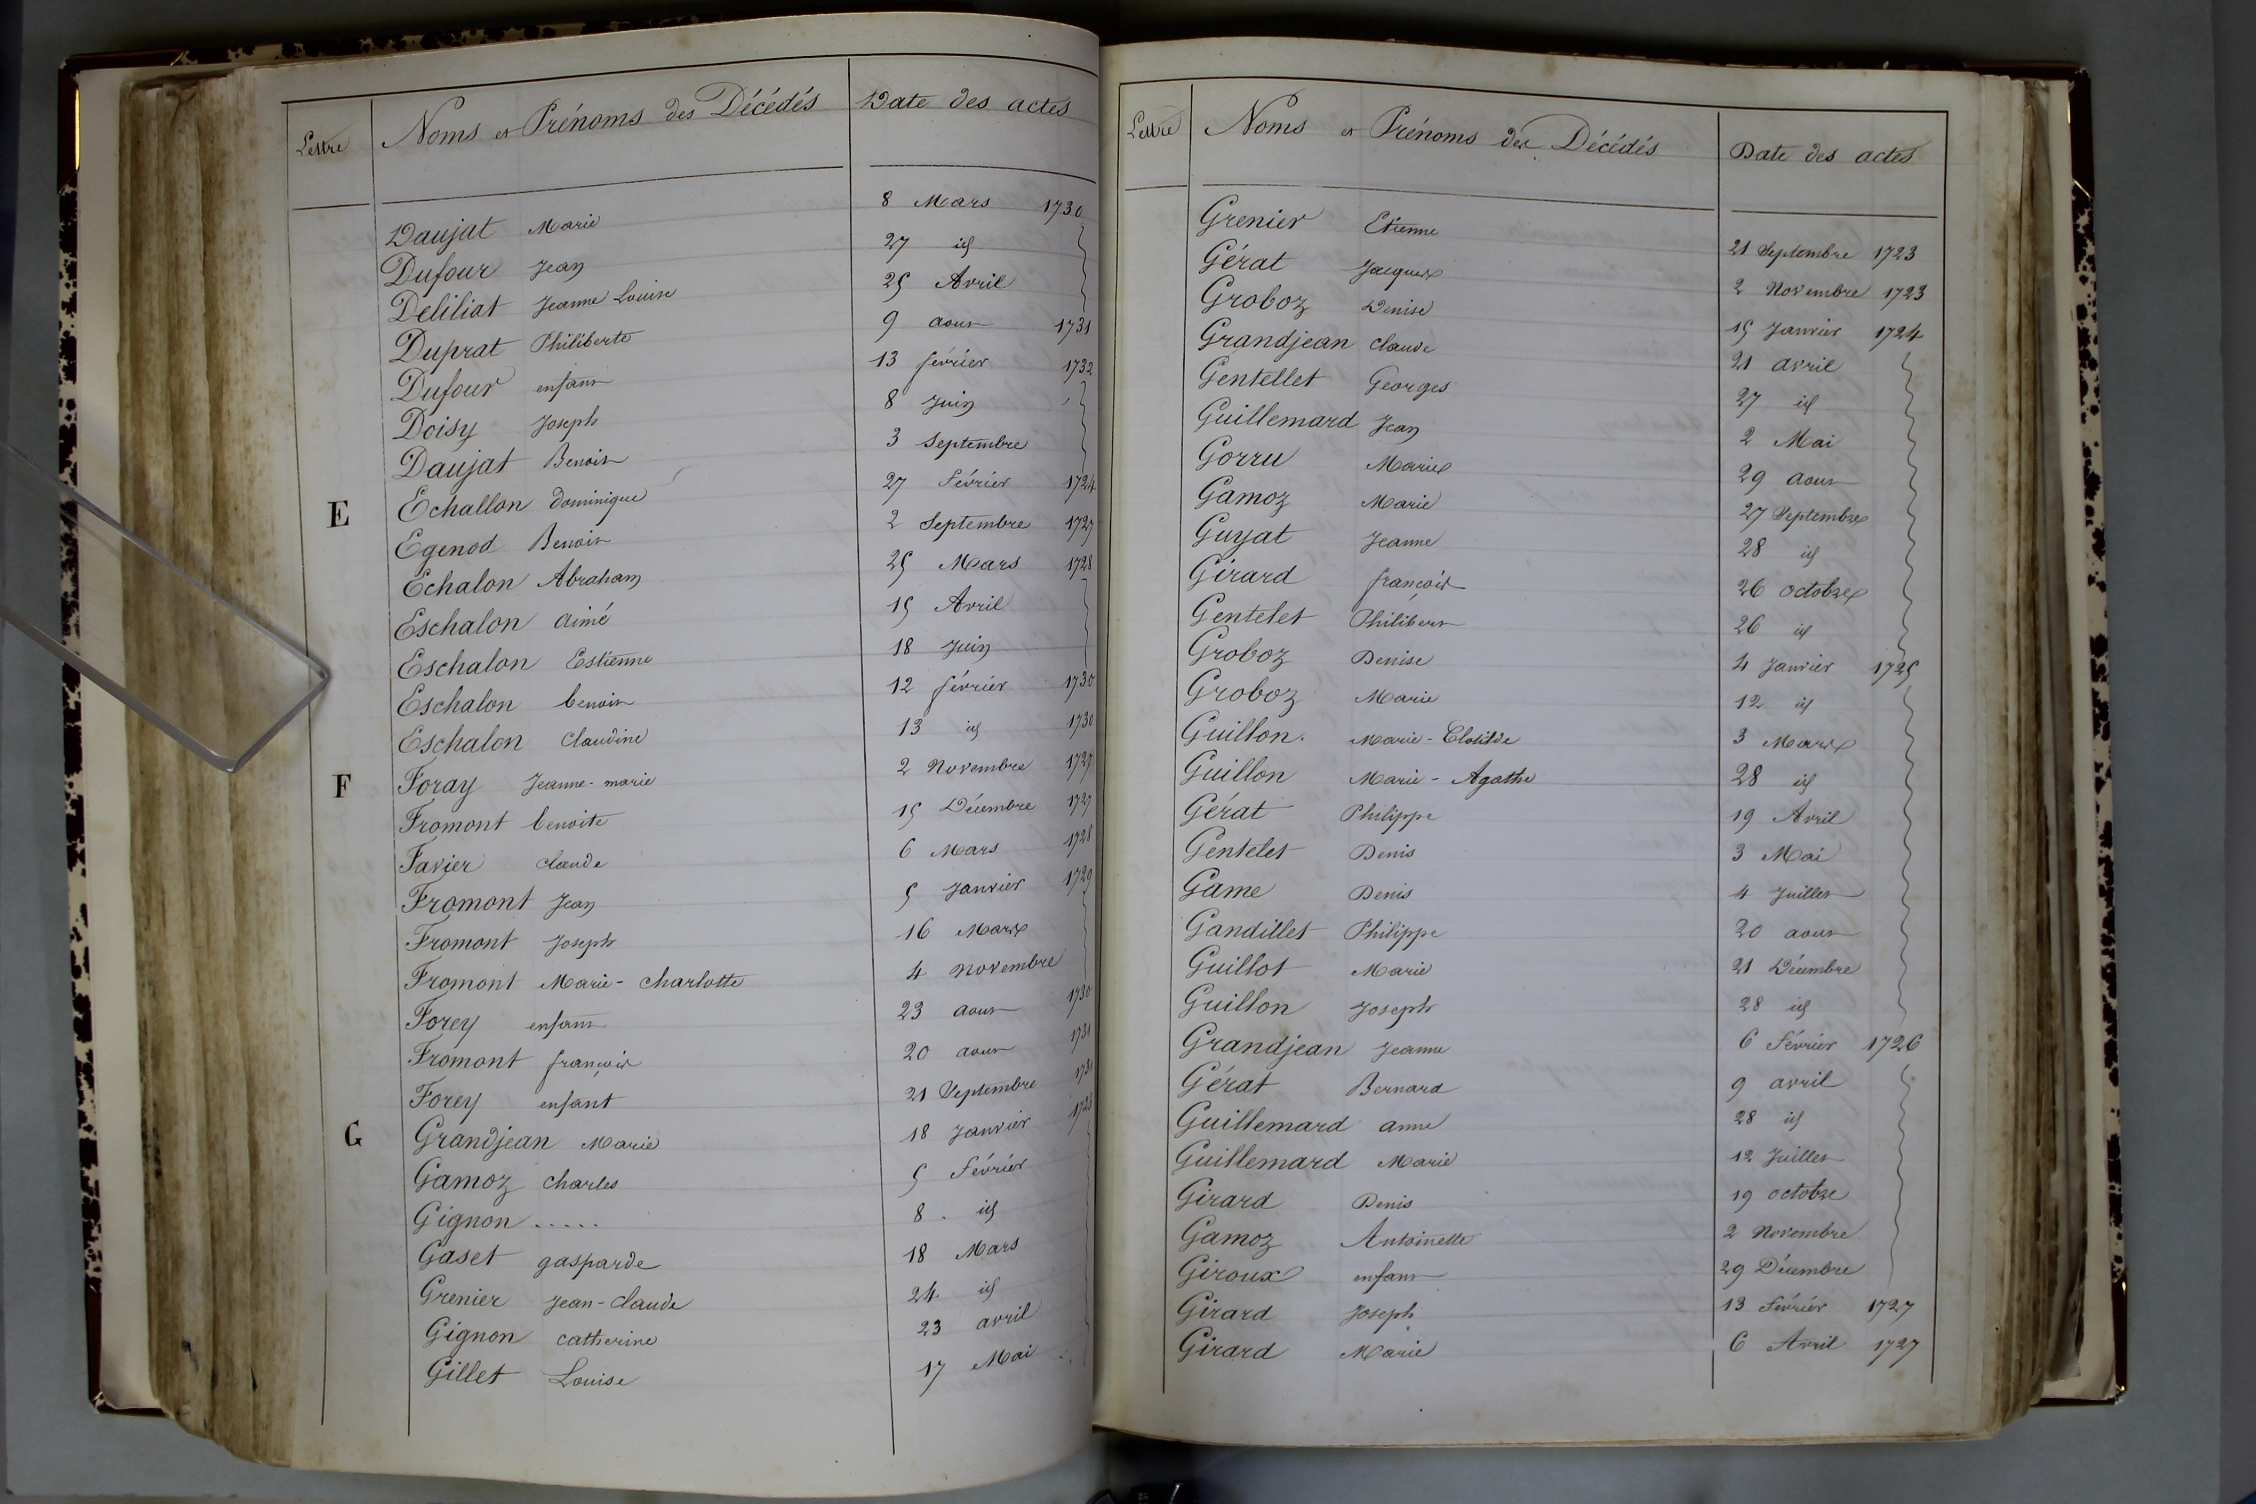 Lettre Noms et Prénoms des Décédés Date des actes
Daujat Marie 8 Mars 1730
Dufour Jean 27 id
Deliliat Jeanne Louise 25 Avril
Duprat Philiberte 9 aout 1731
Dufour enfant 13 février 1732
Doisy Joseph 8 Juin
Daujat Benoit 3 Septembre
E Echallon Dominique 27 Février 1724
Egenod Benoit 2 Septembre 1727
Echalon Abraham 25 Mars 1728
Eschalon aimé 15 Avril
Eschalon Estienne 18 Juin
Eschalon benoit 12 février 1730
Eschalon Claudine 13 id 1730
F Foray Jeanne-marie 2 Novembre 1727
Fromont benoite 15 Décembre 1727
Favier claude 6 Mars 1728
Fromont Jean 5 Janvier 1729
Fromont Joseph 16 Mars
Fromont Marie-charlotte 4 Novembre
Forey enfant 23 aout 1730
Fromont françois 20 aout 1731
Forey enfant 21 Septembre 1731
G Grandjean Marie 18 Janvier 1723
Gamoz charles 5 Février
Gignon ..... 8 id
Gaset gasparde 18 Mars
Grenier Jean-claude 24 id
Gignon catherine 23 avril
Gillet Louise 17 Mai
Lettre Noms et Prénoms des Décédés Date des actes
Grenier Etienne 21 Septembre 1723
Gérat Jacques 2 Novembre 1723
Groboz Denise 15 Janvier 1724
Grandjean claude 21 avril
Gentellet Georges 27 id
Guillemard Jean 2 Mai
Gorru Marie 29 aout
Gamoz Marie 27 Septembre
Guyat Jeanne 28 id
Girard françois 26 octobre
Gentelet Philibert 26 id
Groboz Denise 4 Janvier 1725
Groboz Marie 12 id
Guillon Marie-Clotilde 3 Mars
Guillon Marie-Agathe 28 id
Gérat Philippe 19 Avril
Gentelet Denis 3 Mai
Game Denis 4 Juillet
Gandillet Philippe 20 aout
Guillot Marie 21 Décembre
Guillon Joseph 28 id
Grandjean Jeanne 6 Février 1726
Gérat Bernard 9 avril
Guillemard anne 28 id
Guillemard Marie 12 Juillet
Girard Denis 19 octobre
Gamoz Antoinette 2 Novembre
Giroux enfant 29 Décembre
Girard Joseph 13 Février 1727
Girard Marie 6 Avril 1727